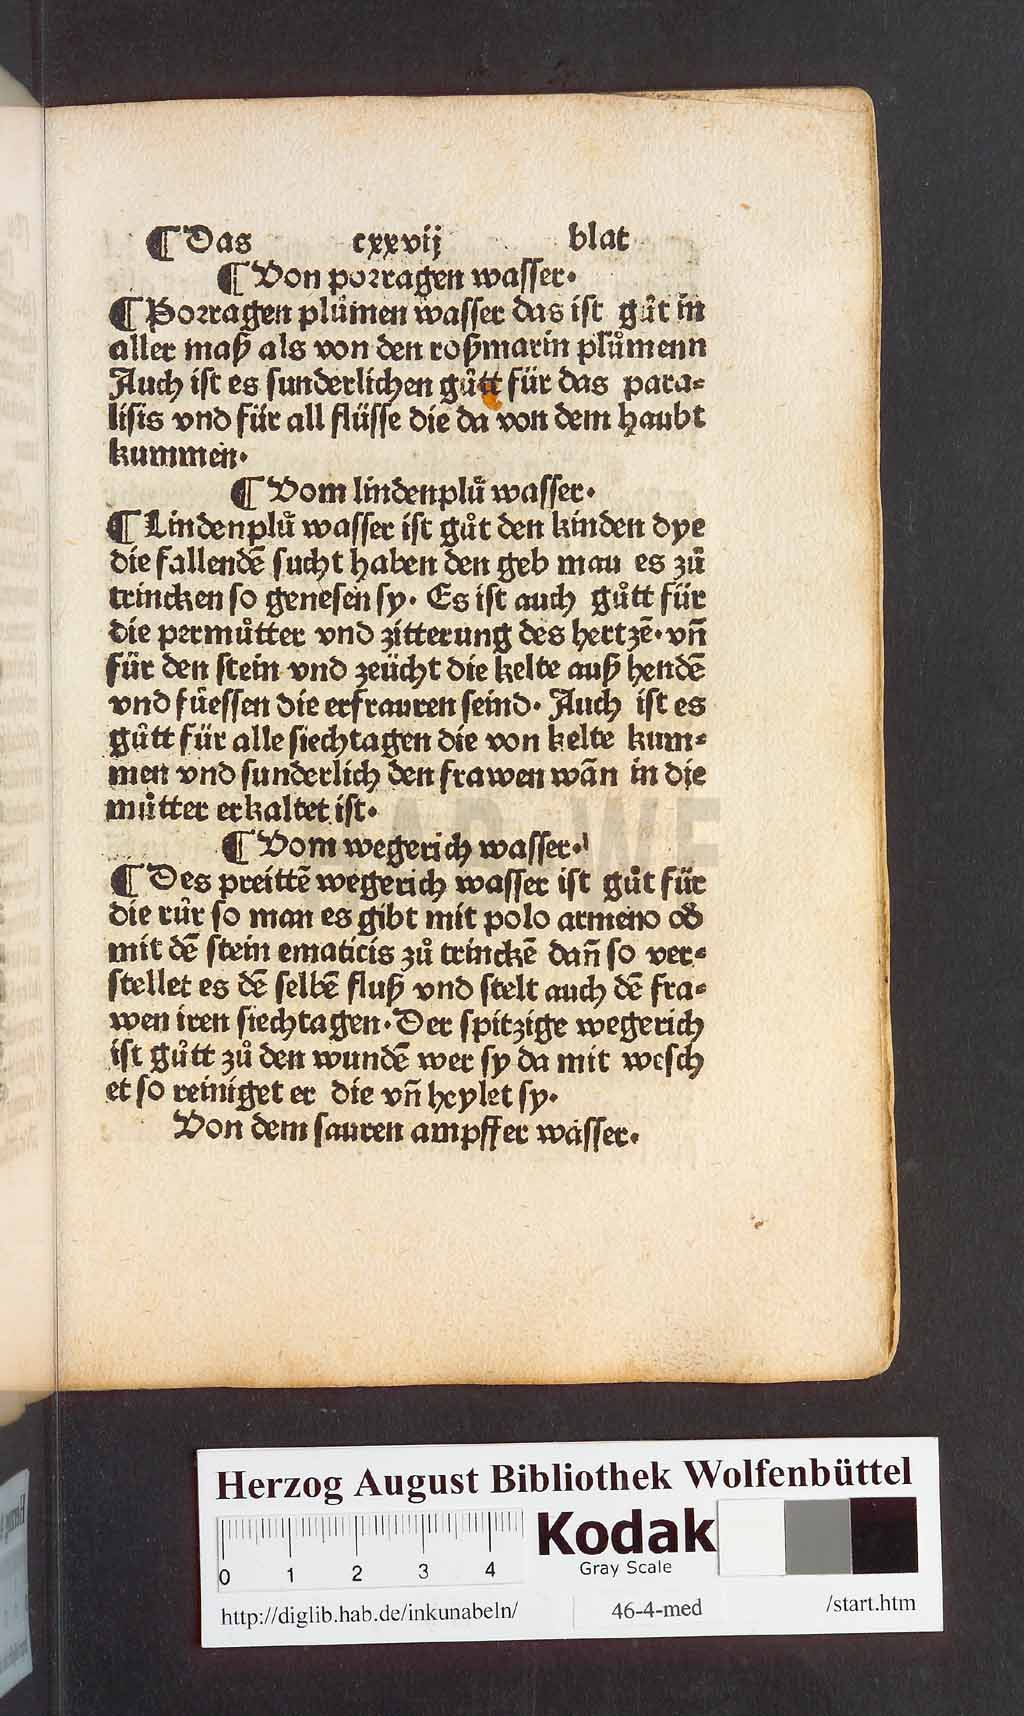 ¶ Das cxxvij blat
¶ Von porragen wasser.
¶ Porragen plůmen wasser das ist gůt in
aller maß als von den roßmarin plůmenn
Auch ist es sunderlichen gůtt für das para-
lisis vnd für all flüsse die da von dem haubt
kummen.
¶ Vom lindenplů wasser.
¶ Lindenplů wasser ist gůt den kinden dye
die fallendē sucht haben den geb man es zů
trincken so genesen sy. Es ist auch gůtt für
die permůtter vnd zitterung des hertzē. vn̄
für den stein vnd zeücht die kelte auß hendē
vnd füessen die erfrauren seind. Auch ist es
gůtt für alle siechtagen die von kelte kum-
men vnd sunderlich den frawen wān in die
můtter erkaltet ist.
¶ Vom wegerich wasser.
¶ Des preittē wegerich wasser ist gůt für
die růr so man es gibt mit polo armeno od̕
mit dē stein ematicis zů trinckē dan̄ so ver-
stellet es dē selbē fluß vnd stelt auch dē fra-
wen iren siechtagen. Der spitzige wegerich
ist gůtt zů den wundē wer sy da mit wesch
et so reiniget er die vn̄ heylet sy.
Von dem sauren ampffer wasser.
HAB WF
Herzog August Bibliothek Wolfenbüttel
0 1 2 3 4
Kodak
Gray Scale
http://diglib.hab.de/inkunabeln/ 46-4-med /start.htm